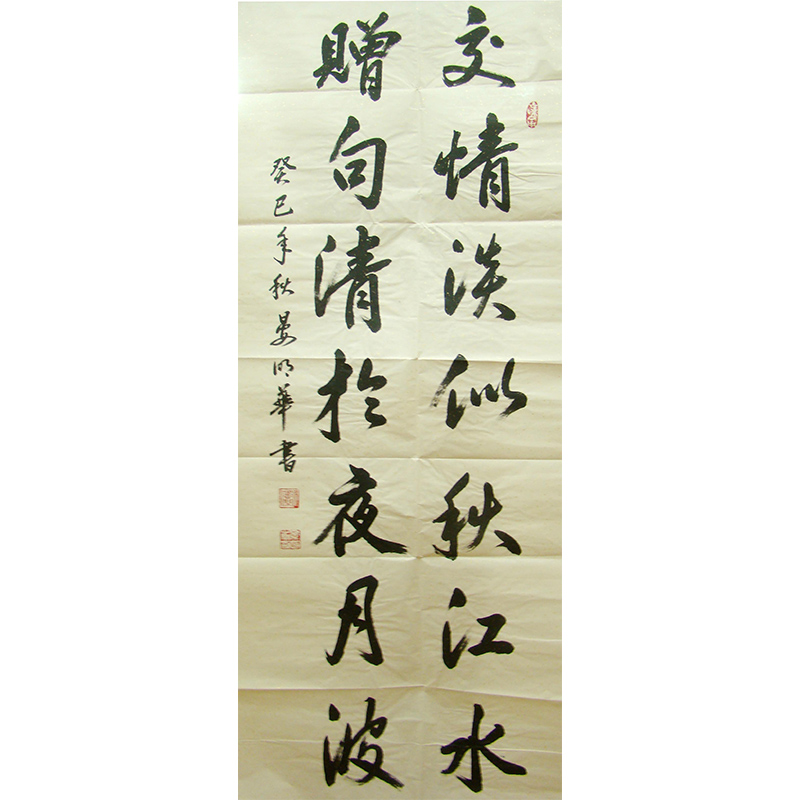 交情淡似秋江水
贈句清於夜月波
癸巳年秋晏明華書